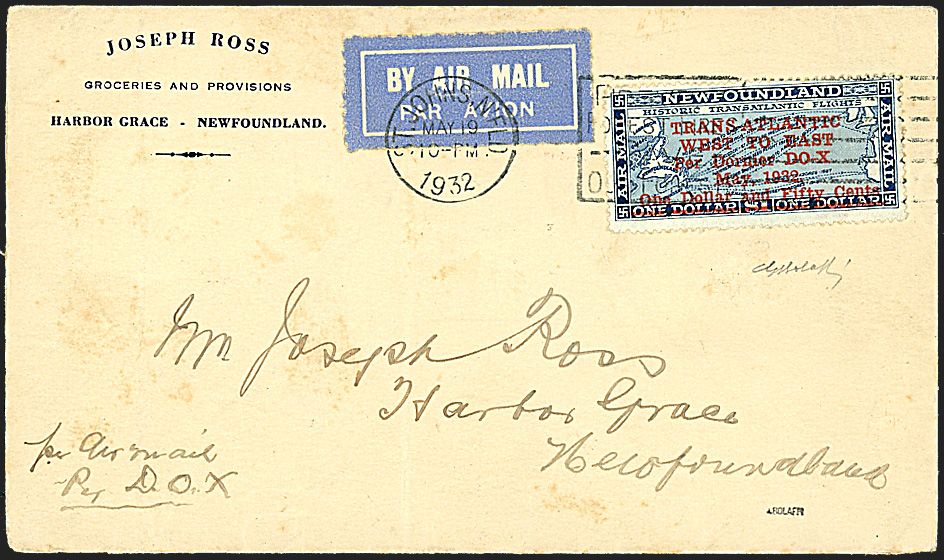 JOSEPH ROSS
GROCERIES AND PROVISIONS
HARBOR GRACE - NEWFOUNDLAND.
BY AIR MAIL
PAR AVION
ST. JOHN'S, NFLD
MAY 19
10-PM
1932
NEWFOUNDLAND
HISTORIC TRANSATLANTIC FLIGHTS
AIR MAIL
AIR MAIL
TRANS-ATLANTIC
WEST TO EAST
Per Dornier DO-X
May, 1932.
One Dollar and Fifty Cents
ONE DOLLAR $1 ONE DOLLAR
Mr Joseph Ross
Harbor Grace
Newfoundland
per Air mail
Per D.O.X
A.BOLAFFI